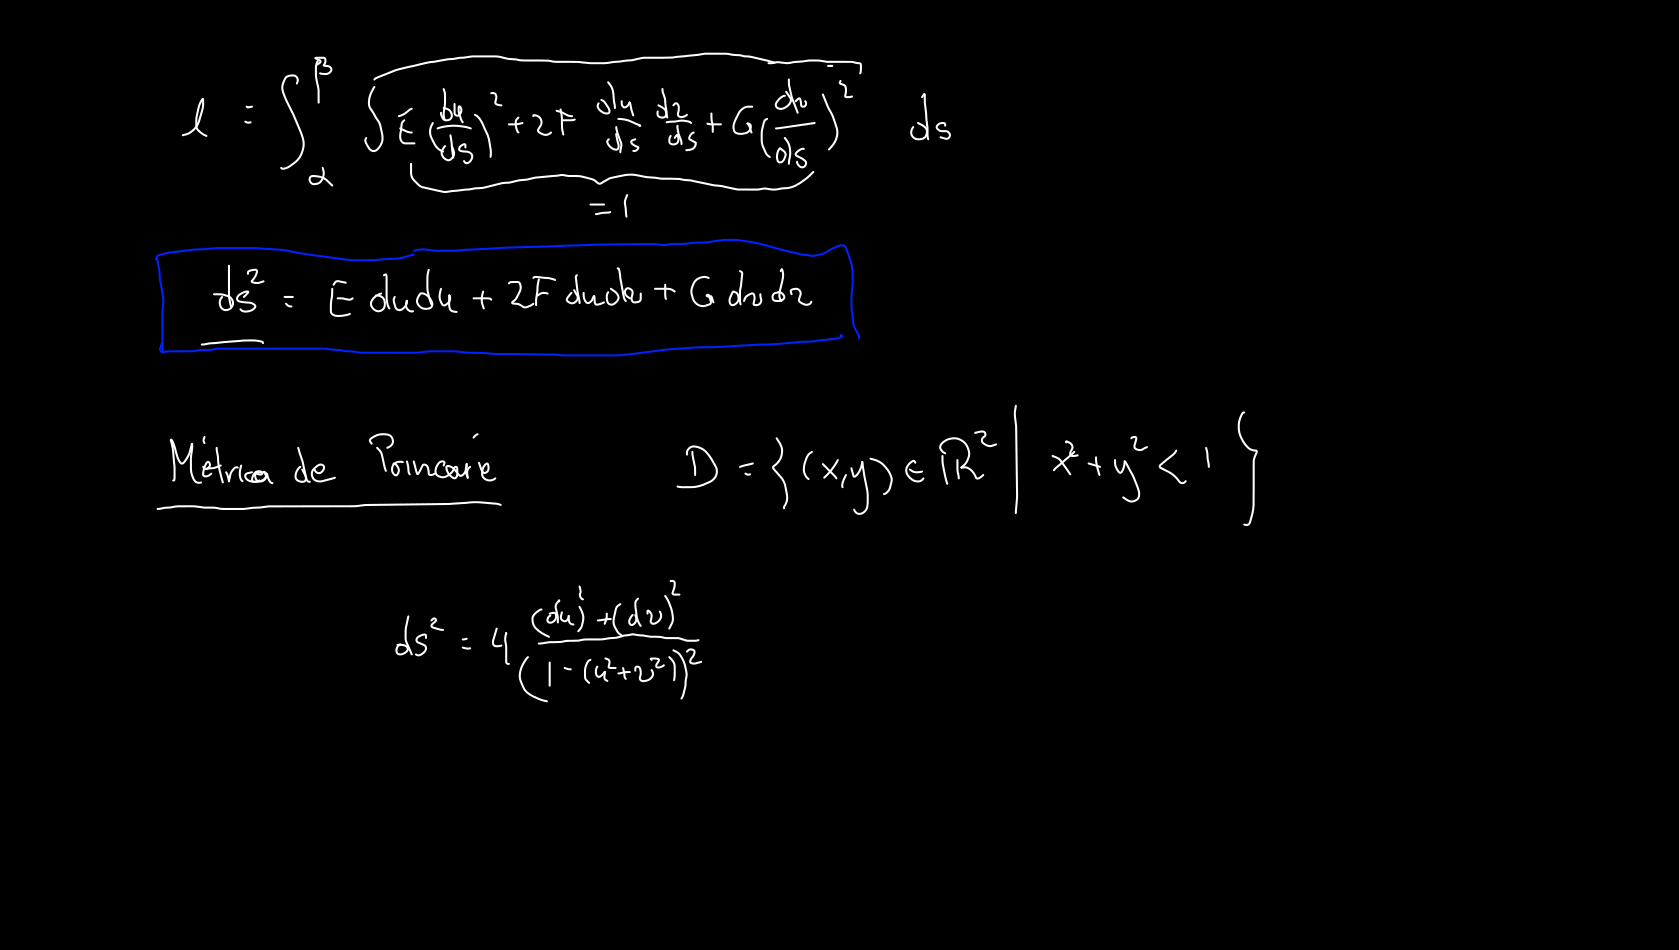 l = ∫_α^β √( E (du/ds)² + 2F du/ds dv/ds + G (dv/ds)² ) ds
= 1
ds² = E du du + 2F du dv + G dv dv
Métrica de Poincaré D = { (x,y) ∈ ℝ² | x² + y² < 1 }
ds² = 4 ((du)² + (dv)²) / (1 - (u² + v²))²